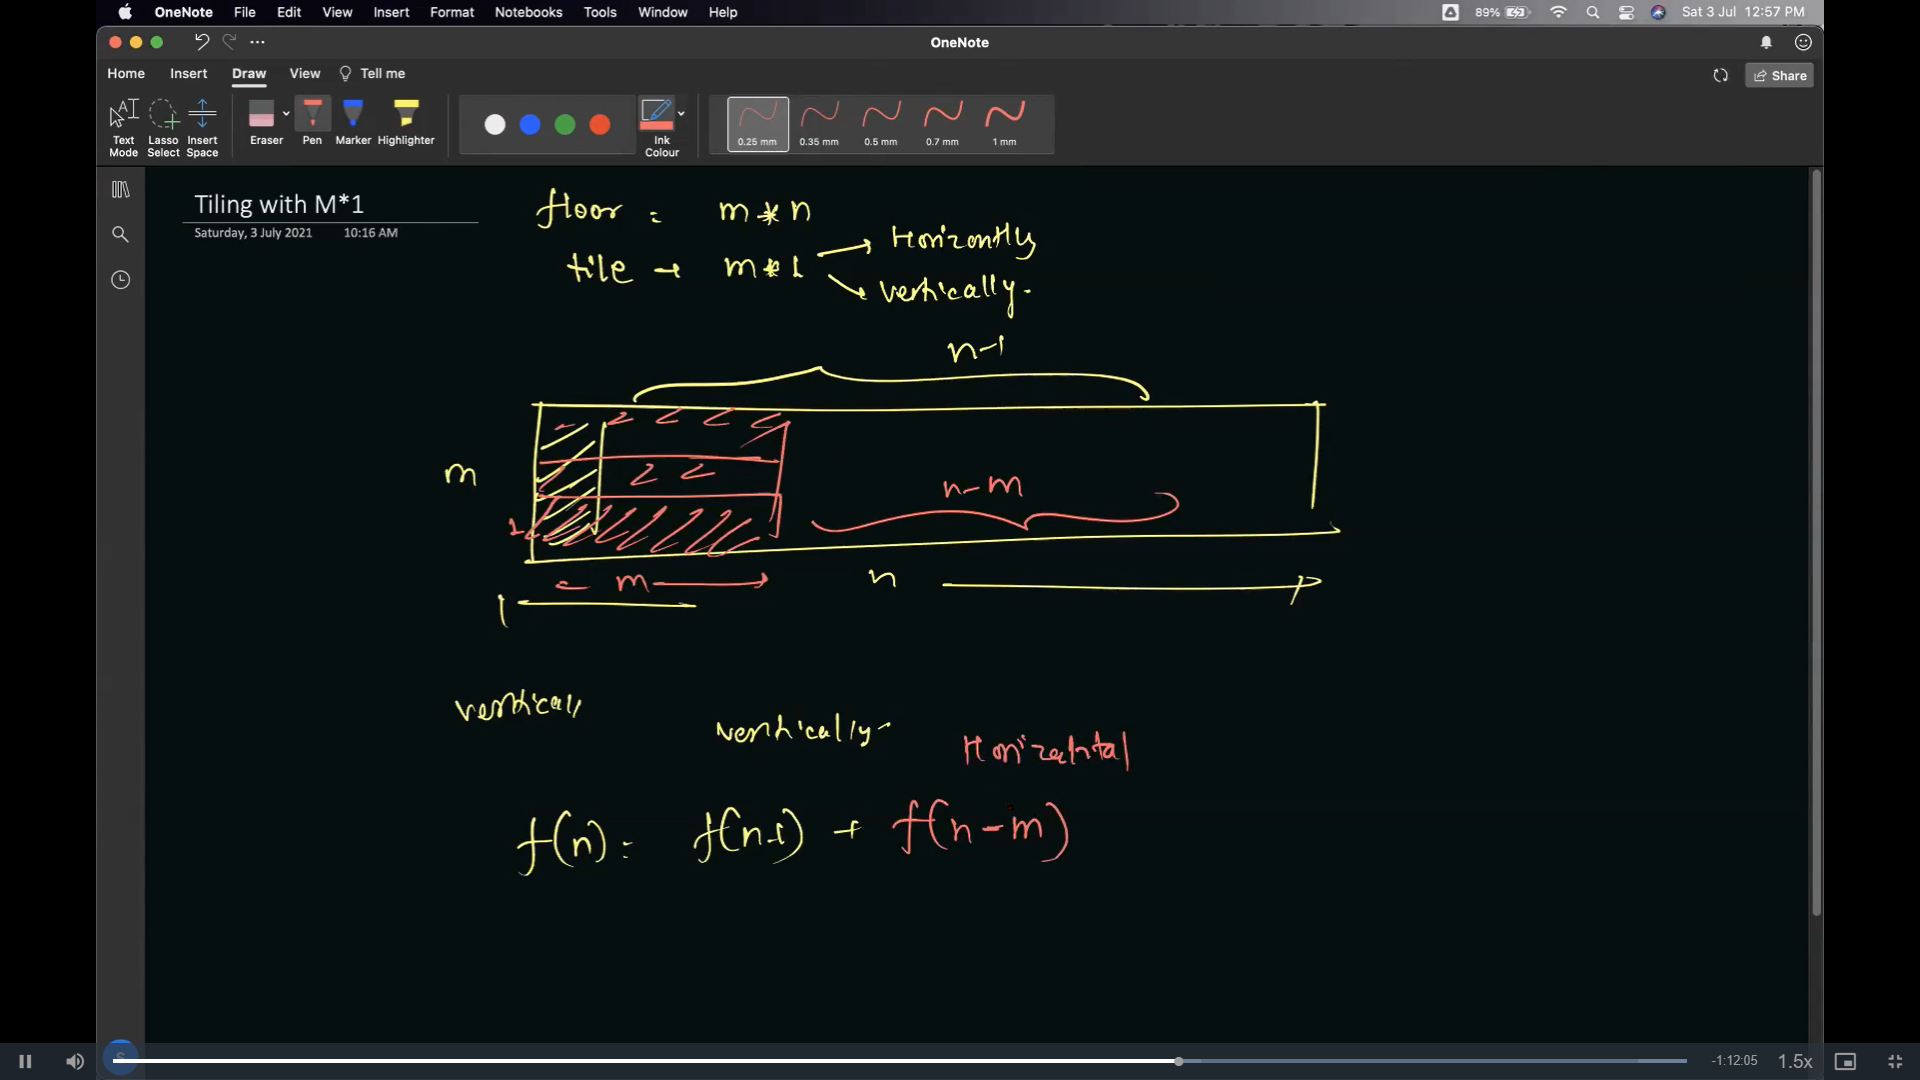 OneNote File Edit View Insert Format Notebooks Tools Window Help 89% Sat 3 Jul 12:57 PM
OneNote
Home Insert Draw View Tell me Share
Text Mode Lasso Select Insert Space Eraser Pen Marker Highlighter Ink Colour 0.25 mm 0.35 mm 0.5 mm 0.7 mm 1 mm
Tiling with M*1
Saturday, 3 July 2021 10:16 AM
floor = m * n
tile → m * 1
Horizontly
vertically.
n-1
m
n-m
1
m
n
vertical
vertically
Horizontal
f(n) = f(n-1) + f(n-m)
-1:12:05 1.5x